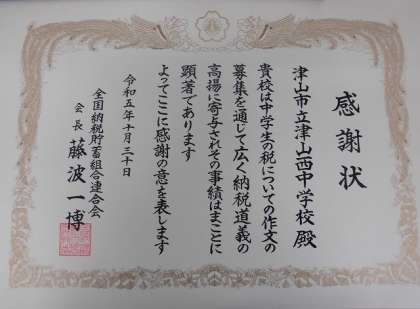 感謝状
津山市立津山西中学校殿
貴校は中学生の税についての作文の
募集を通じて広く納税道義の
高揚に寄与されその事績はまことに
顕著であります
よってここに感謝の意を表します
令和五年十月三十日
全国納税貯蓄組合連合会
会長 藤波一博